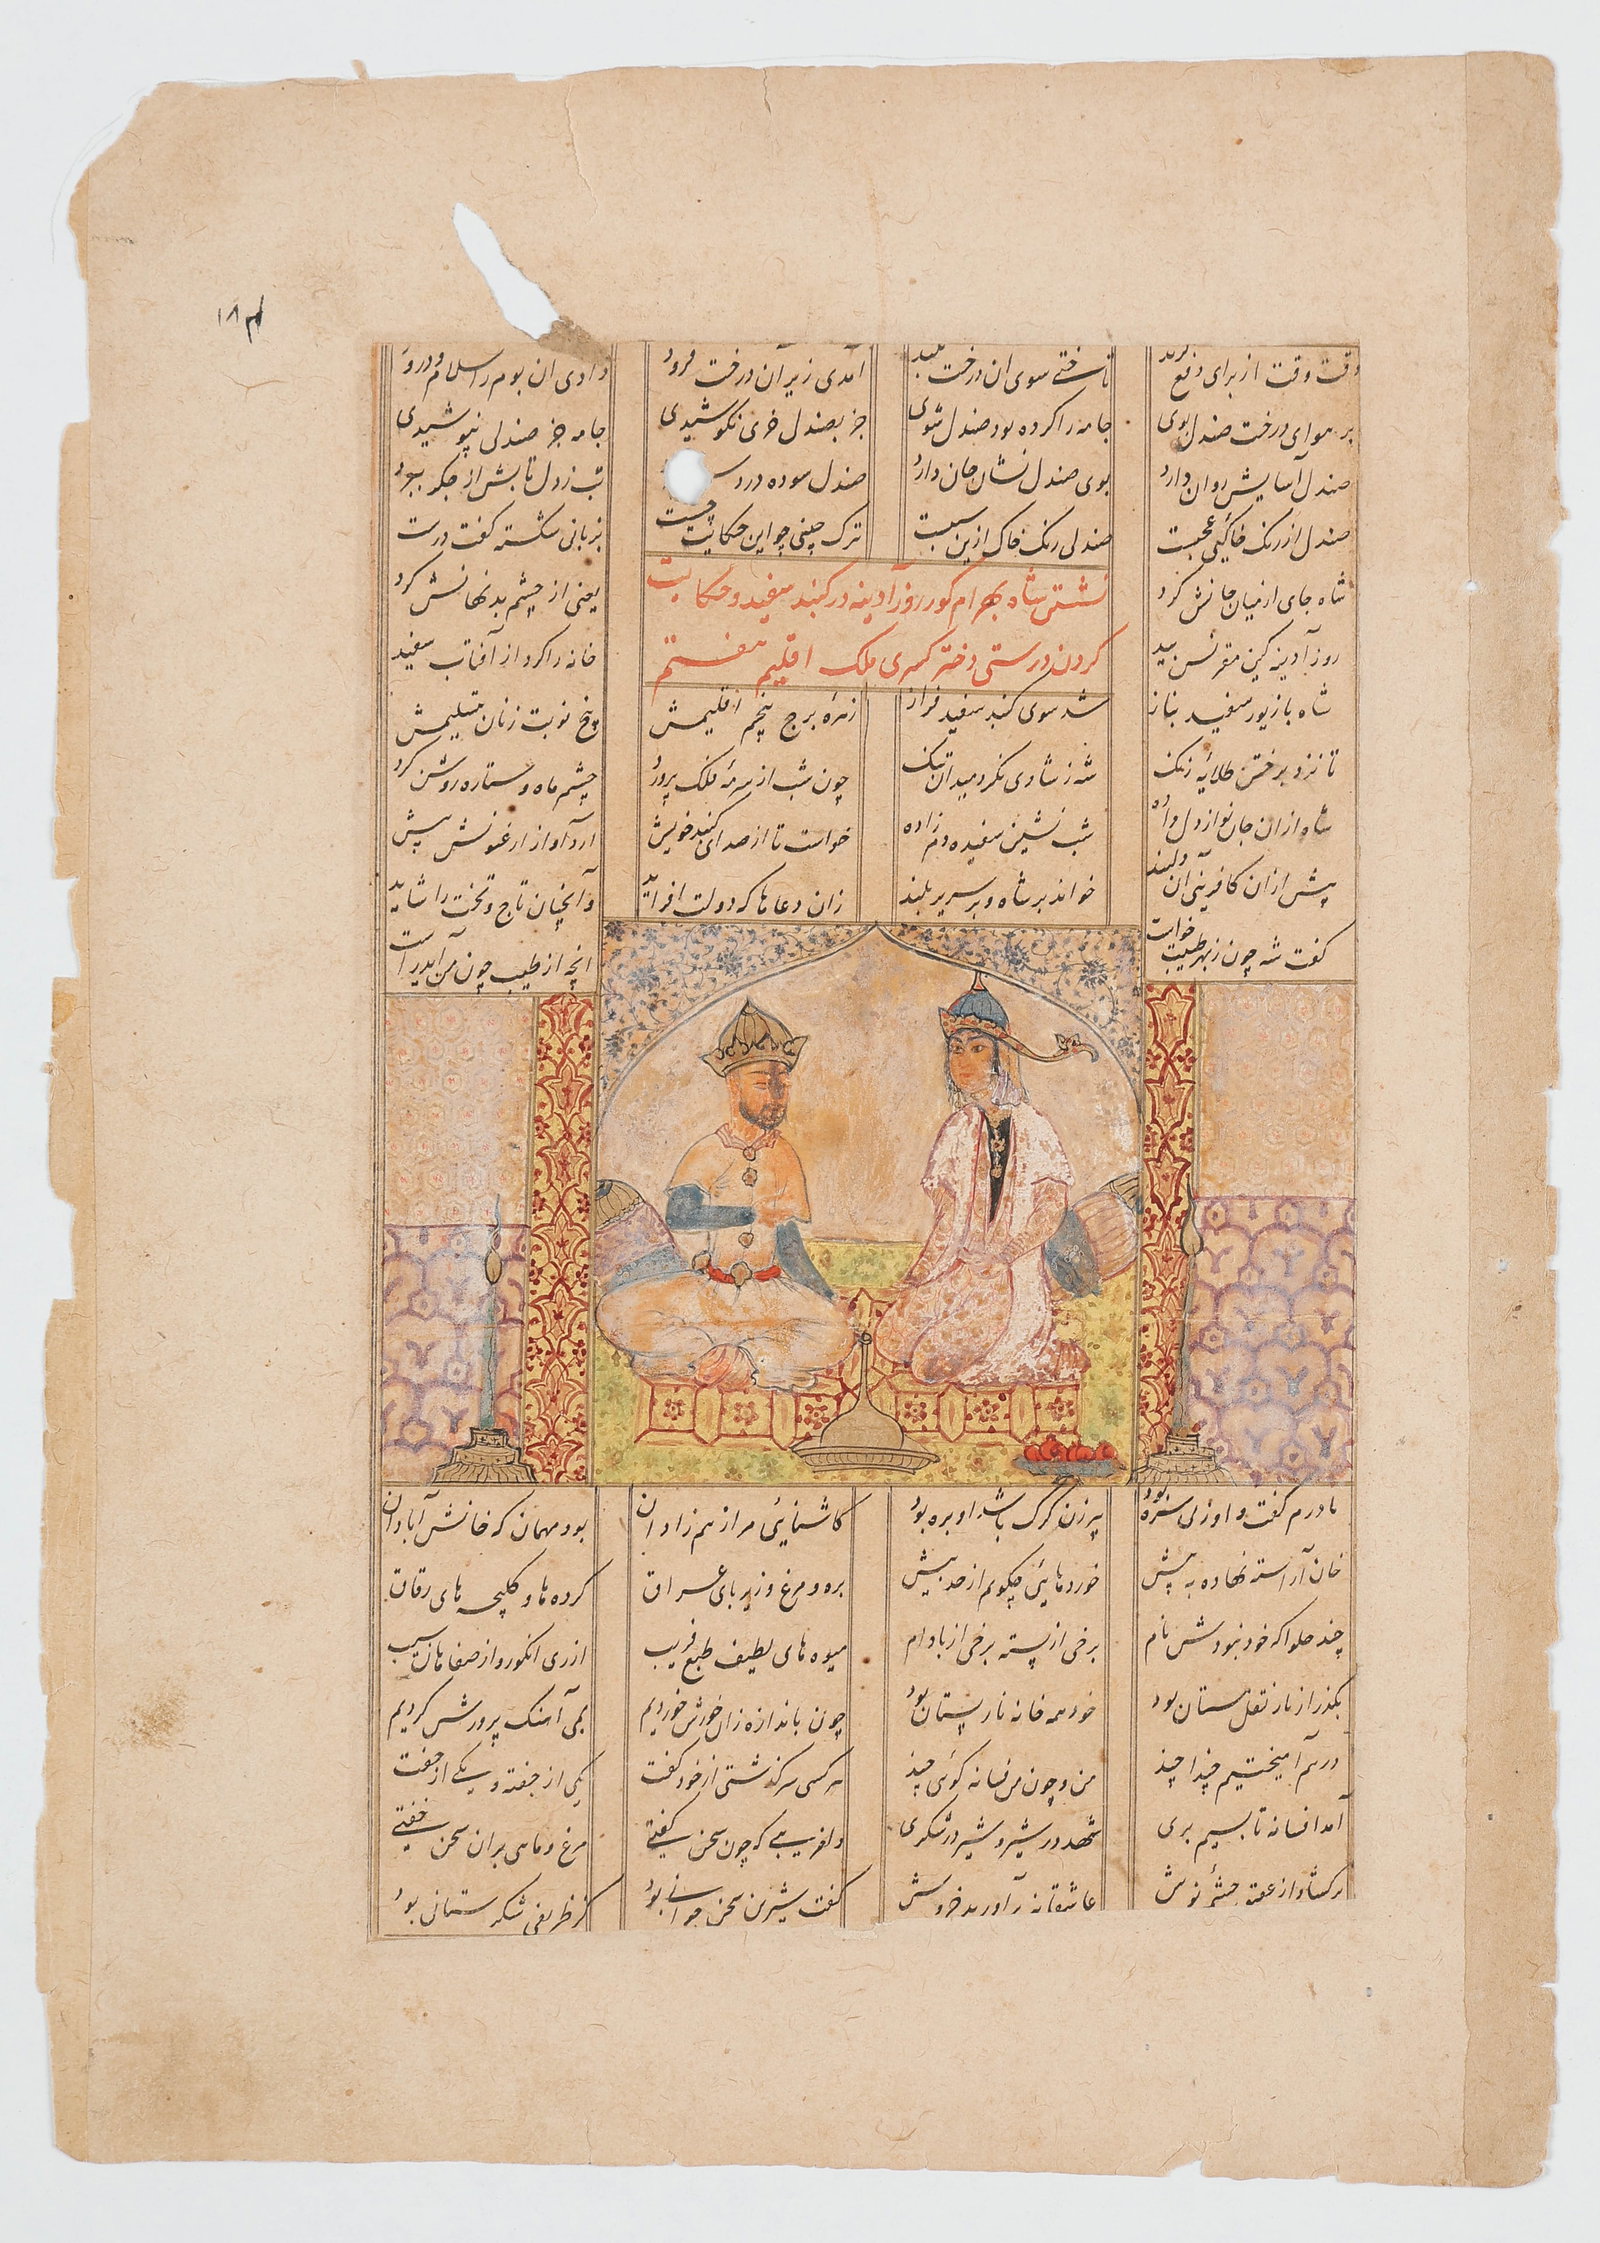 ۱۸۳
وقت وقت از برای دفع گزند تاختی سوی ان درخت بلند آمدی زیر آن درخت فرود دادی ان بوم را سلام و درود
بر هوای درخت صندل بوی جامه را کرده بود صندل شوی جز بصندل خری نکوشیدی جامه جز صندلی نپوشیدی
صندل آسایش روان دارد بوی صندل نشان جان دارد صندل سوده درد تب ز دل تابش از جگر ببرد
صندل از رنگ خاکی عجبست صندلی رنگ خاک ازین سببست ترک چینی چو این حکایت چست بزبانی شکسته گفت درست
شاه جای از میان جانش کرد یعنی از چشم بد نهانش کرد
نشستن شاه بهرام گور روز آدینه در گنبد سفید و حکایت
کردن درستی دختر کسری ملک اقلیم هفتم
روز آدینه کین مقرنس بید خانه را کرد از آفتاب سفید
شاه با زیور سفید بناز شد سوی گنبد سفید فراز زهره برج پنجم اقلیمش پنج نوبت زنان تسلیمش
تا نزد بر ختن طلایه زنگ شه ز شادی نکرد میدان تنگ چون شب از سرمه فلک پرورد چشم ماه و ستاره روشن کرد
شاه ازان جان نواز دل داده شب نشین سفیده دم زاده خواست تا از صدای گنبد خویش ارد آواز ارغنونش پیش
پیش ازان کافرین آن دلبند خواند بر شاه و بر سریر بلند زان دعاها که دولت افزاید وآنچنان تاج و تخت را شاید
گفت شه چون ز بهر طیبت خواست انچه از طیب چون من آید راست
مادرم گفت و او زنی سره بود پیرزن گرگ باشد او بره بود کاشنائی مرا ز هم زادان برد مهمان که خانش آبادان
خان آراسته نهاده به پیش خوردهائی چگویم از حد بیش بره و مرغ و زیربای عراق کرده ها و کلیچه های رقاق
چند حلوا که خود نبودش نام برخی از پسته برخی از بادام میوه های لطیف طبع فریب از ری انگور و از صفاهان سیب
بگذر از نار نقل مستان بود خود همه خانه نار پستان بود چون باندازه زان خورش خوردیم بمی آهنگ پرورش کردیم
درهم آمیختیم چندا چند من و چون من فسانه گوئی چند هر کسی سرگذشتی از خود گفت یکی از جفته و یکی از جفت
آمد افسانه تا بسیم بری شهد در شیر و شیر در شکری دلفریبی که چون سخن گفتی مرغ و ماهی بران سخن خفتی
برکشاد از عقیق چشمه نوش عاشقانه برآورید خروش گفت شیرین سخن جوانی بود کز ظریفی شکرستانی بود